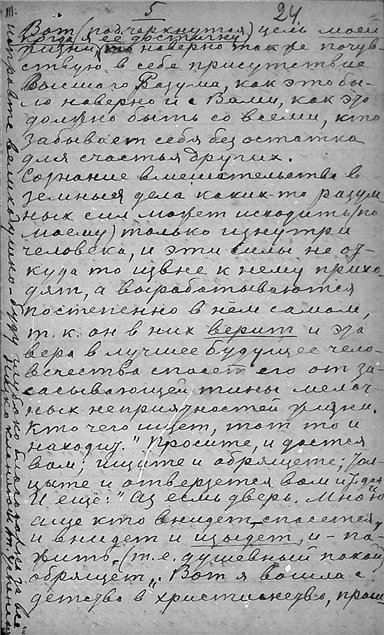 5
24
Вот (подчеркнутся) цель моей
когда её достигну
жизни, то наверно так же почув-
ствую в себе присутствие
Высшего Разума, как это бы-
ло наверно и с Вами, как это
должно быть со всеми, кто
забывает себя без остатка
для счастья других.
Сознание вмешательства в
земные дела каких-то разум
ных сил может исходить (по
моему) только изнутри
человека, и эти силы не от-
куда то извне к нему прихо-
дят, а вырабатываются
постепенно в нём самом,
т. к. он в них верит и эта
вера в лучшее будущее чело-
вечества спасёт его от за-
сасывающей тины мелоч-
ных неприятностей жизни.
Кто чего ищет, тот то и
находит. "Просите, и дастся
вам; ищите и обрящете; тол-
цыте и отверзется вам и т. д."
И ещё: "Аз есмь дверь. Мною
аще кто внидет, спасется,
и внидет и изыдет, и па-
жить (т. е. душевный покой)
обрящет". Вот я вошла с
детства в христианство, прош
великодушно. Буду глубоко благодарна за все